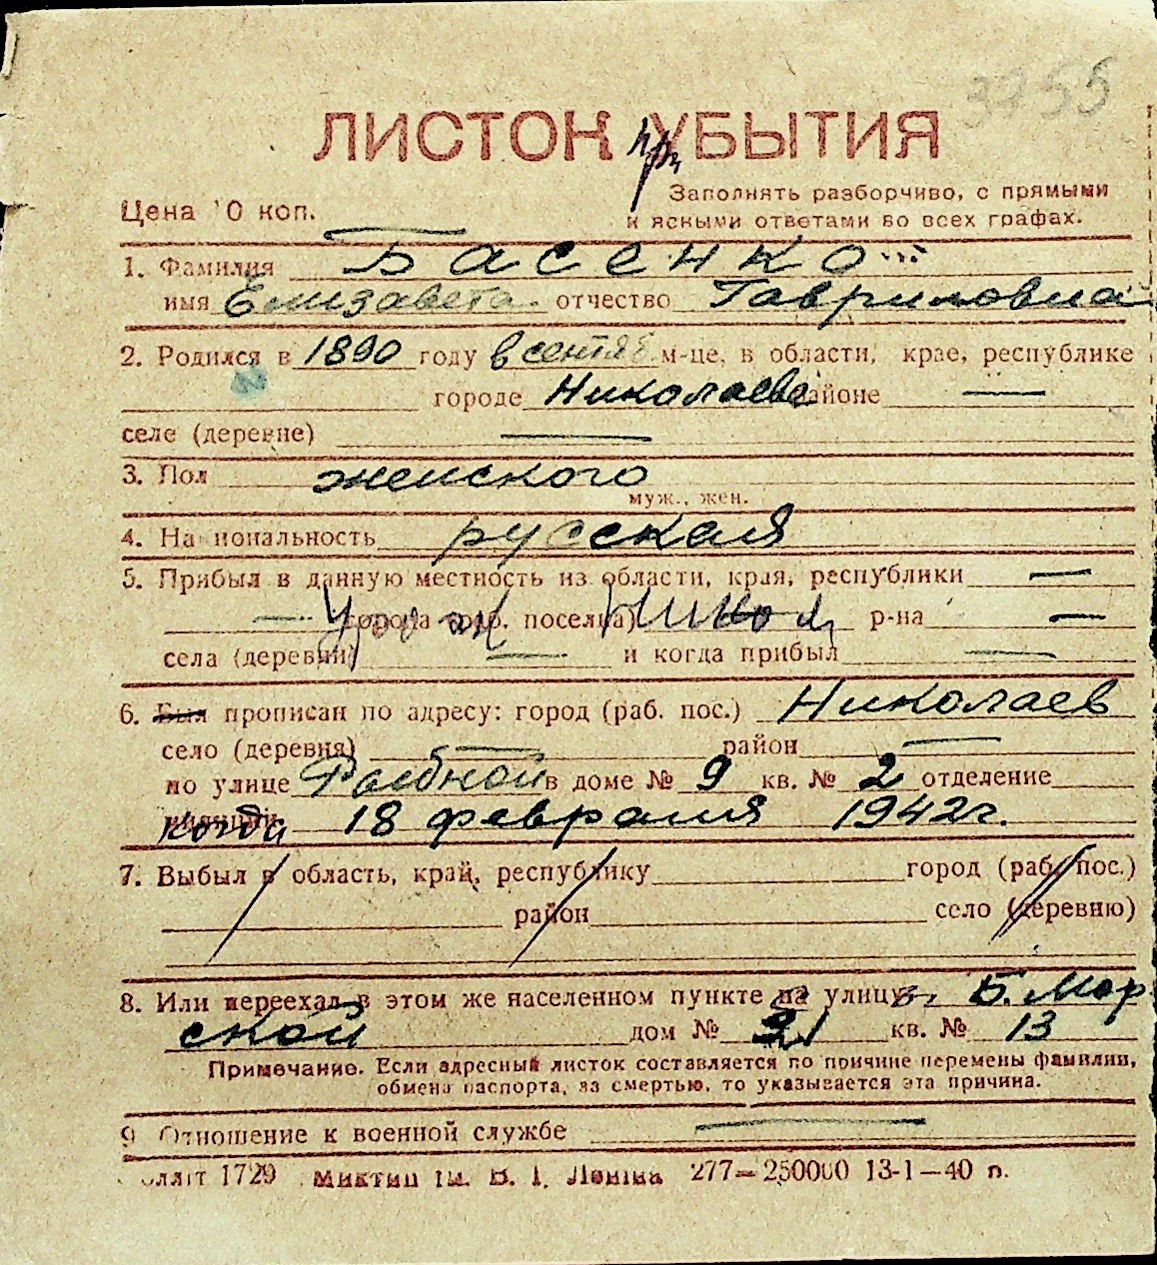 3755
ЛИСТОК при УБЫТИЯ
Заполнять разборчиво, с прямыми
Цена 10 коп. и ясными ответами во всех графах.
1. Фамилия Басенко
имя Елизавета отчество Гавриловна
2. Родился в 1890 году в сентяб м-це, в области, крае, республике
городе Николаеве районе —
селе (деревне) —
3. Пол женского
муж., жен.
4. Национальность русская
5. Прибыл в данную местность из области, края, республики —
— города (раб. поселка) р-на —
села (деревни) — и когда прибыл —
6. Был прописан по адресу: город (раб. пос.) Николаев
село (деревня) — район —
по улице Рыбной в доме № 9 кв. № 2 отделение
милиции когда 18 февраля 1942г.
7. Выбыл в область, край, республику город (раб. пос.)
район село (деревню)
8. Или переехал в этом же населенном пункте на улицу Б. Мор
ской дом № 31 кв. № 13
Примечание. Если адресный листок составляется по причине перемены фамилии,
обмена паспорта, за смертью, то указывается эта причина.
9 Отношение к военной службе —
1729 277—250000 13-1—40 п.